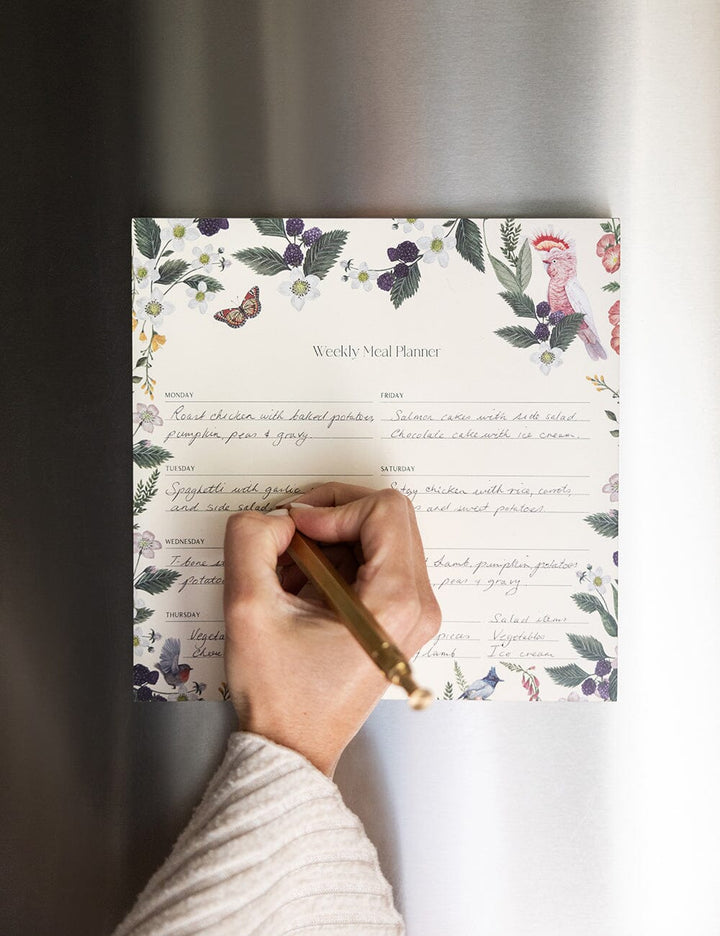 Weekly Meal Planner
MONDAY
Roast chicken with baked potatoes,
pumpkin, peas & gravy.
TUESDAY
Spaghetti with garlic
and side salad
WEDNESDAY
T-bone
THURSDAY
FRIDAY
Salmon cakes with side salad
Chocolate cake with ice cream.
SATURDAY
chicken with rice, carrots,
and sweet potatoes.
lamb, pumpkin, potatoes
peas & gravy
Salad items
Vegetables
lamb Ice cream